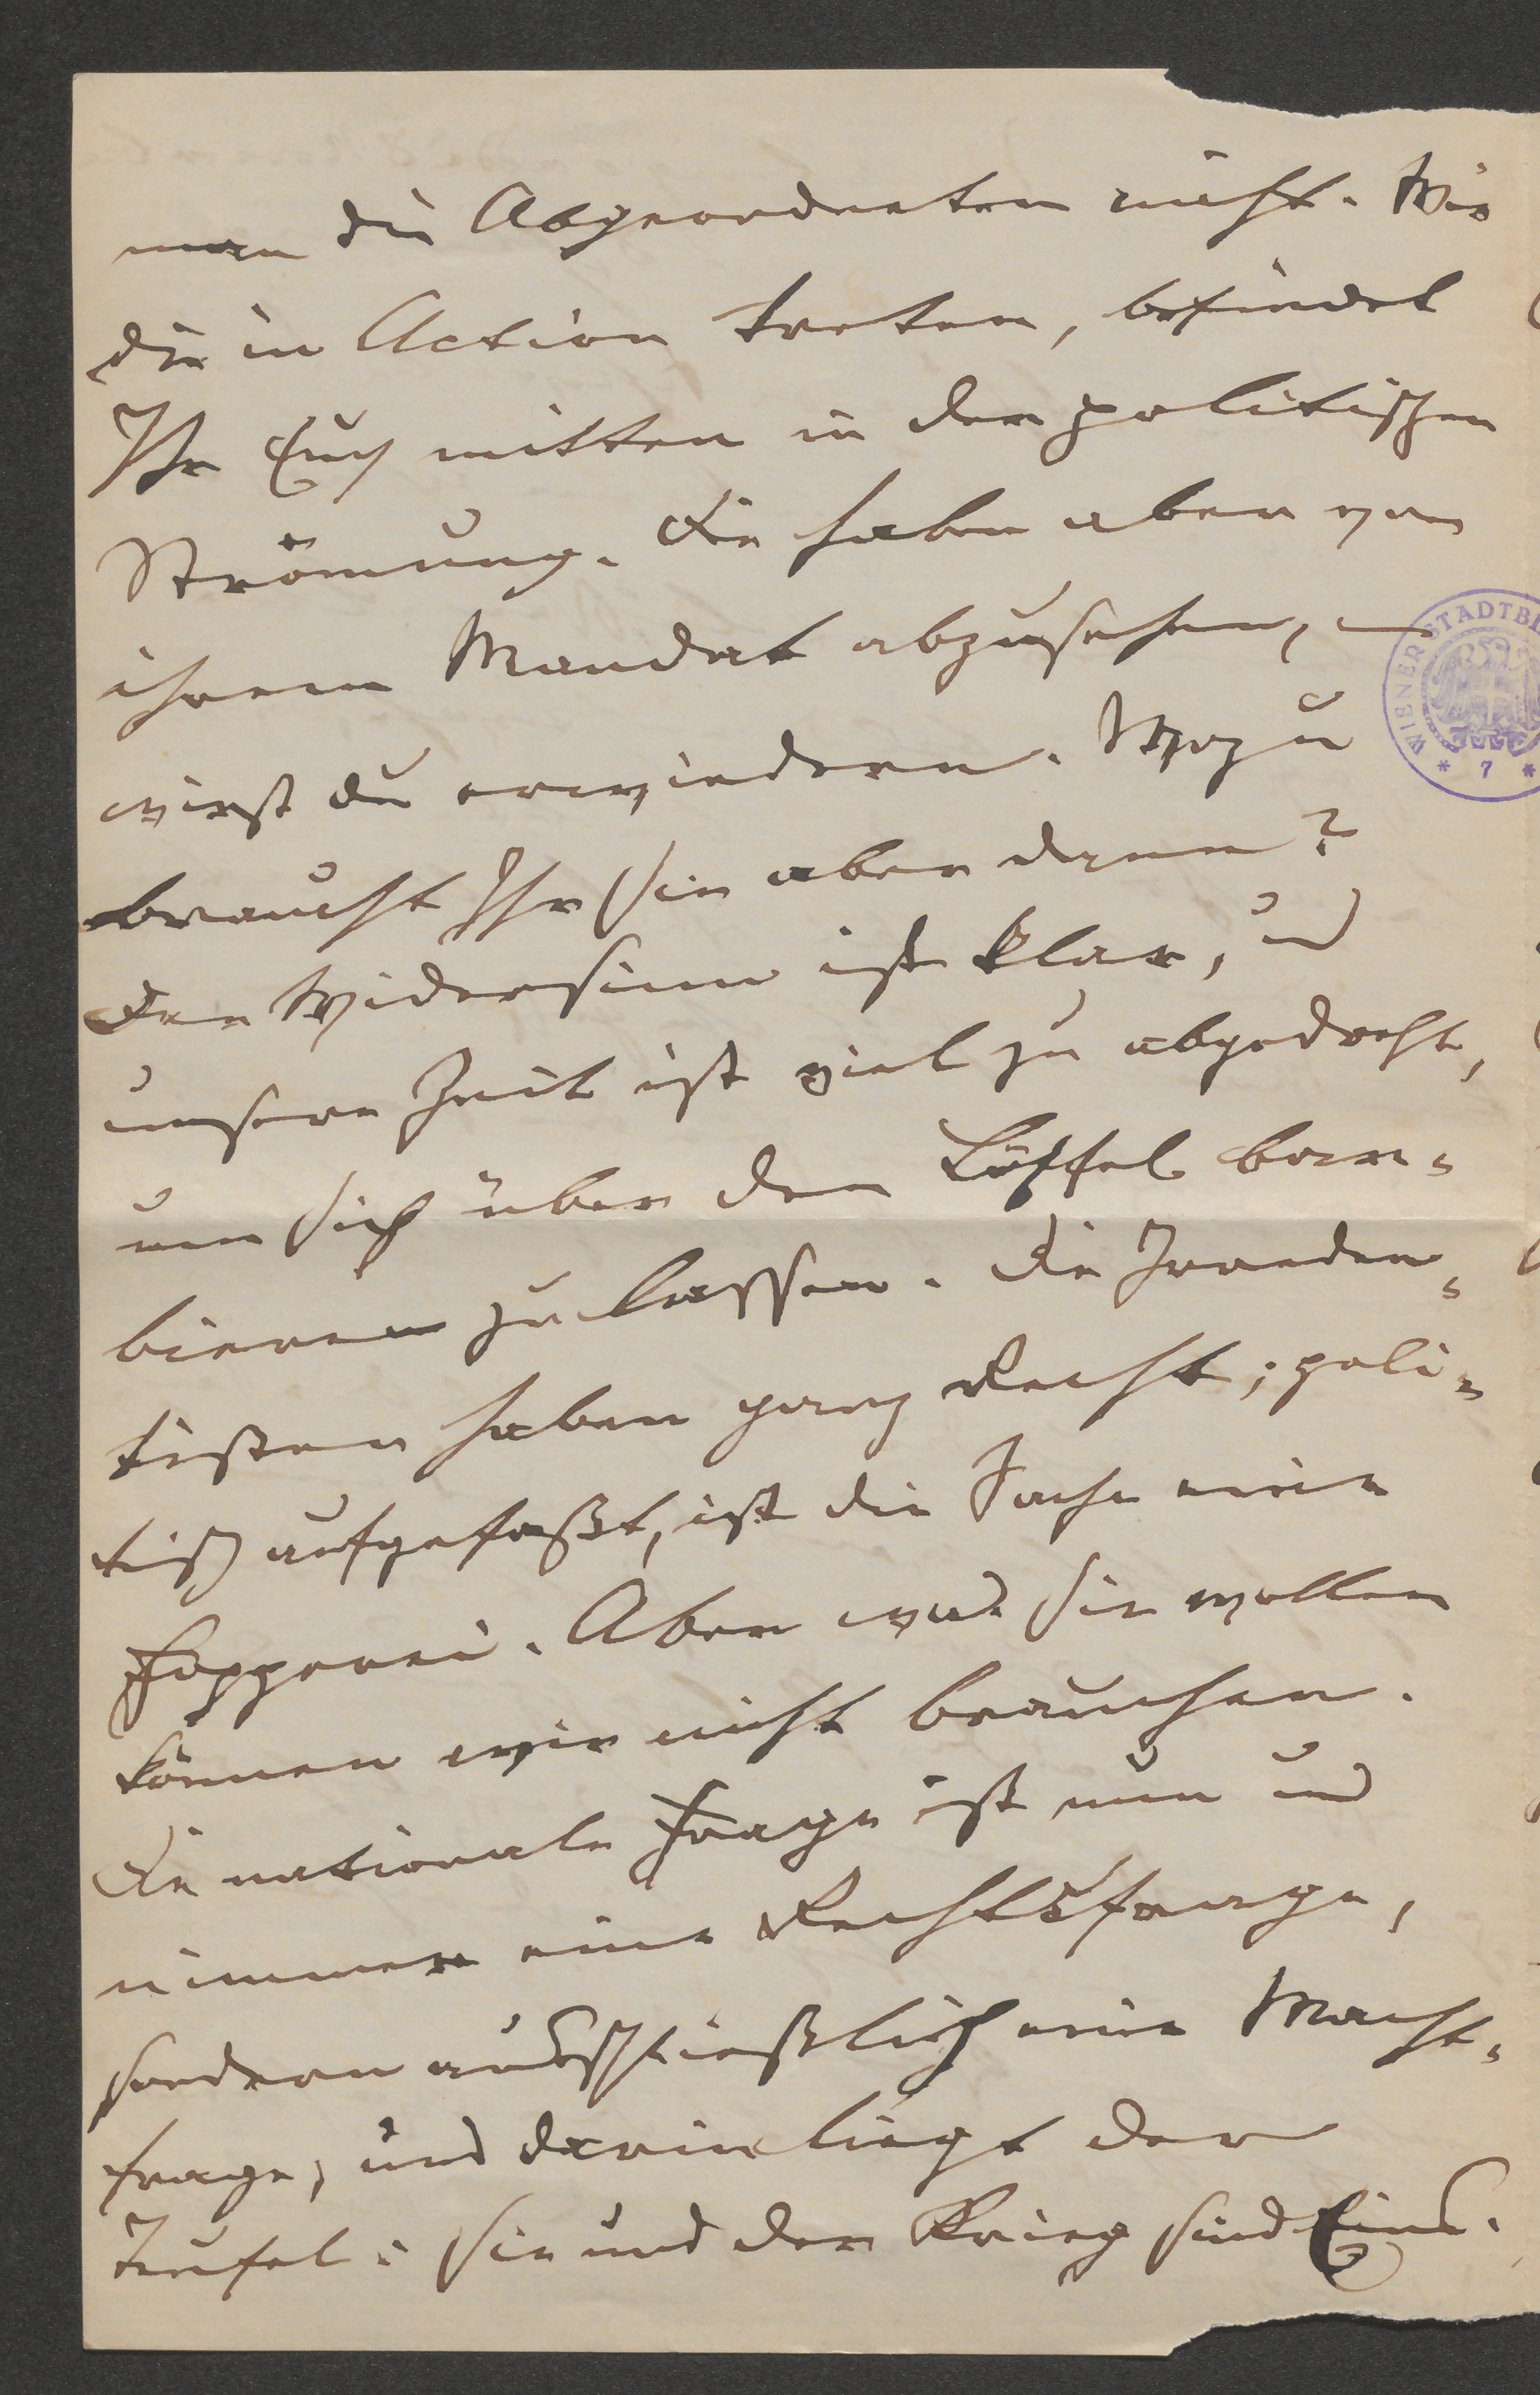 man die Abgeordneten nicht. Wie
die in Action treten, befindet
Ihr Euch mitten in der politischen
Strömung. Sie haben aber von
ihrem Mandat abzusehen, –
wirst du erwiedern. Wozu
braucht Ihr sie aber dann?
Der Widersinn ist klar, und
unsere Zeit ist viel zu abgedreht,
um sich über den Löffel bar-
bieren zu lassen. Die Irreden-
tisten haben ganz Recht; poli-
tisch aufgefaßt, ist die Sache eine
Fopperei. Aber was sie wollen
können wir nicht brauchen.
Die nationale Frage ist nun und
nimmer eine Rechtsfrage,
sondern ausschließlich eine Macht-
frage, und darin liegt der
Teufel: sie und der Krieg sind Eins.
WIENER STADTBI
* 7 *